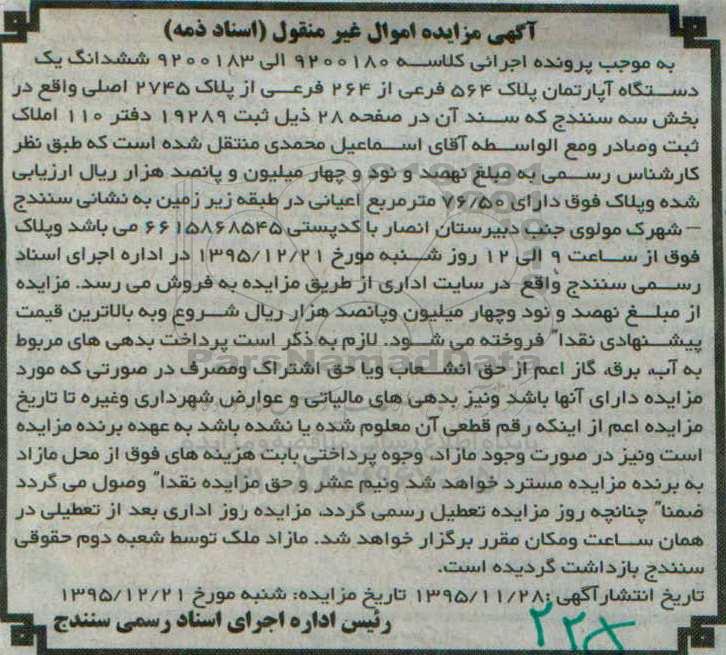 آگهی مزایده اموال غیر منقول (اسناد ذمه)
به موجب پرونده اجرائی کلاسه ۹۲۰۰۱۸۰ الی ۹۲۰۰۱۸۳ ششدانگ یک
دستگاه آپارتمان پلاک ۵۶۴ فرعی از ۲۶۴ فرعی از پلاک ۲۷۴۵ اصلی واقع در
بخش سه سنندج که سند آن در صفحه ۲۸ ذیل ثبت ۱۹۲۸۹ دفتر ۱۱۰ املاک
ثبت وصادر ومع الواسطه آقای اسماعیل محمدی منتقل شده است که طبق نظر
کارشناس رسمی به مبلغ نهصد و نود و چهار میلیون و پانصد هزار ریال ارزیابی
شده وپلاک فوق دارای ۷۶/۵۰ مترمربع اعیانی در طبقه زیر زمین به نشانی سنندج
– شهرک مولوی جنب دبیرستان انصار با کدپستی ۶۶۱۵۸۶۸۵۴۵ می باشد وپلاک
فوق از ساعت ۹ الی ۱۲ روز شنبه مورخ ۱۳۹۵/۱۲/۲۱ در اداره اجرای اسناد
رسمی سنندج واقع در سایت اداری از طریق مزایده به فروش می رسد. مزایده
از مبلغ نهصد و نود وچهار میلیون وپانصد هزار ریال شروع وبه بالاترین قیمت
پیشنهادی نقدا" فروخته می شود. لازم به ذکر است پرداخت بدهی های مربوط
به آب، برق، گاز اعم از حق انشعاب ویا حق اشتراک ومصرف در صورتی که مورد
مزایده دارای آنها باشد ونیز بدهی های مالیاتی و عوارض شهرداری وغیره تا تاریخ
مزایده اعم از اینکه رقم قطعی آن معلوم شده یا نشده باشد به عهده برنده مزایده
است ونیز در صورت وجود مازاد، وجوه پرداختی بابت هزینه های فوق از محل مازاد
به برنده مزایده مسترد خواهد شد ونیم عشر و حق مزایده نقدا" وصول می گردد
ضمنا" چنانچه روز مزایده تعطیل رسمی گردد، مزایده روز اداری بعد از تعطیلی در
همان ساعت ومکان مقرر برگزار خواهد شد. مازاد ملک توسط شعبه دوم حقوقی
سنندج بازداشت گردیده است.
تاریخ انتشارآگهی :۱۳۹۵/۱۱/۲۸ تاریخ مزایده: شنبه مورخ ۱۳۹۵/۱۲/۲۱
رئیس اداره اجرای اسناد رسمی سنندج
ParsNamadData